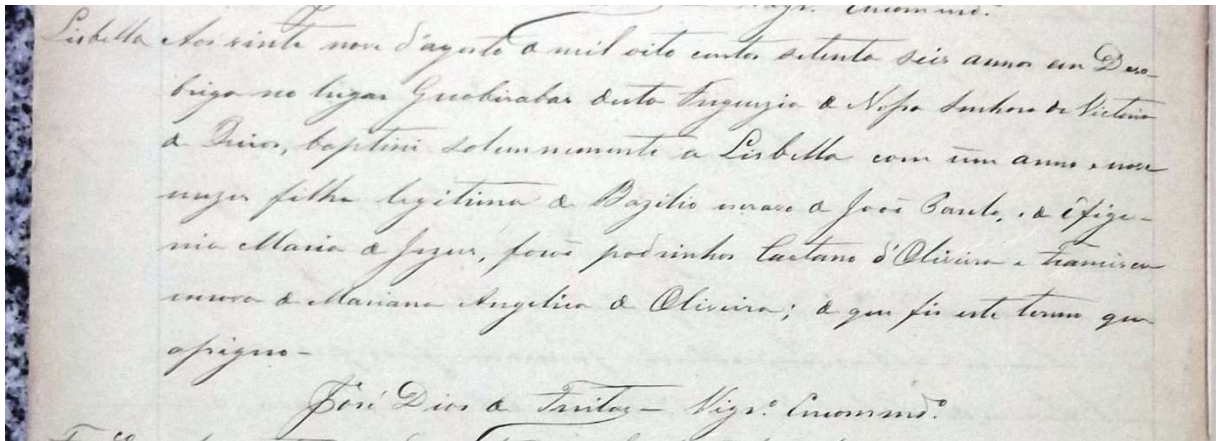 Vigrº. Encommdº.
Lisbella Aos vinte nove d'agosto de mil oito centos setenta seis annos em Deso-
briga no lugar Guabirabas desta Freguezia de Nossa Senhora da Victoria
de Oeiras, baptisei solemnemente a Lisbella com um anno e nove
mezes filha legitima de Bazilio escravo de João Paulo, e de Efige-
nia Maria de Jezus, forão padrinhos Caetano d'Oliveira e Francisca
escrava de Mariana Angelica de Oliveira; de que fis este termo que
assigno-
José Dias de Freitas - Vigrº. Encommdº.